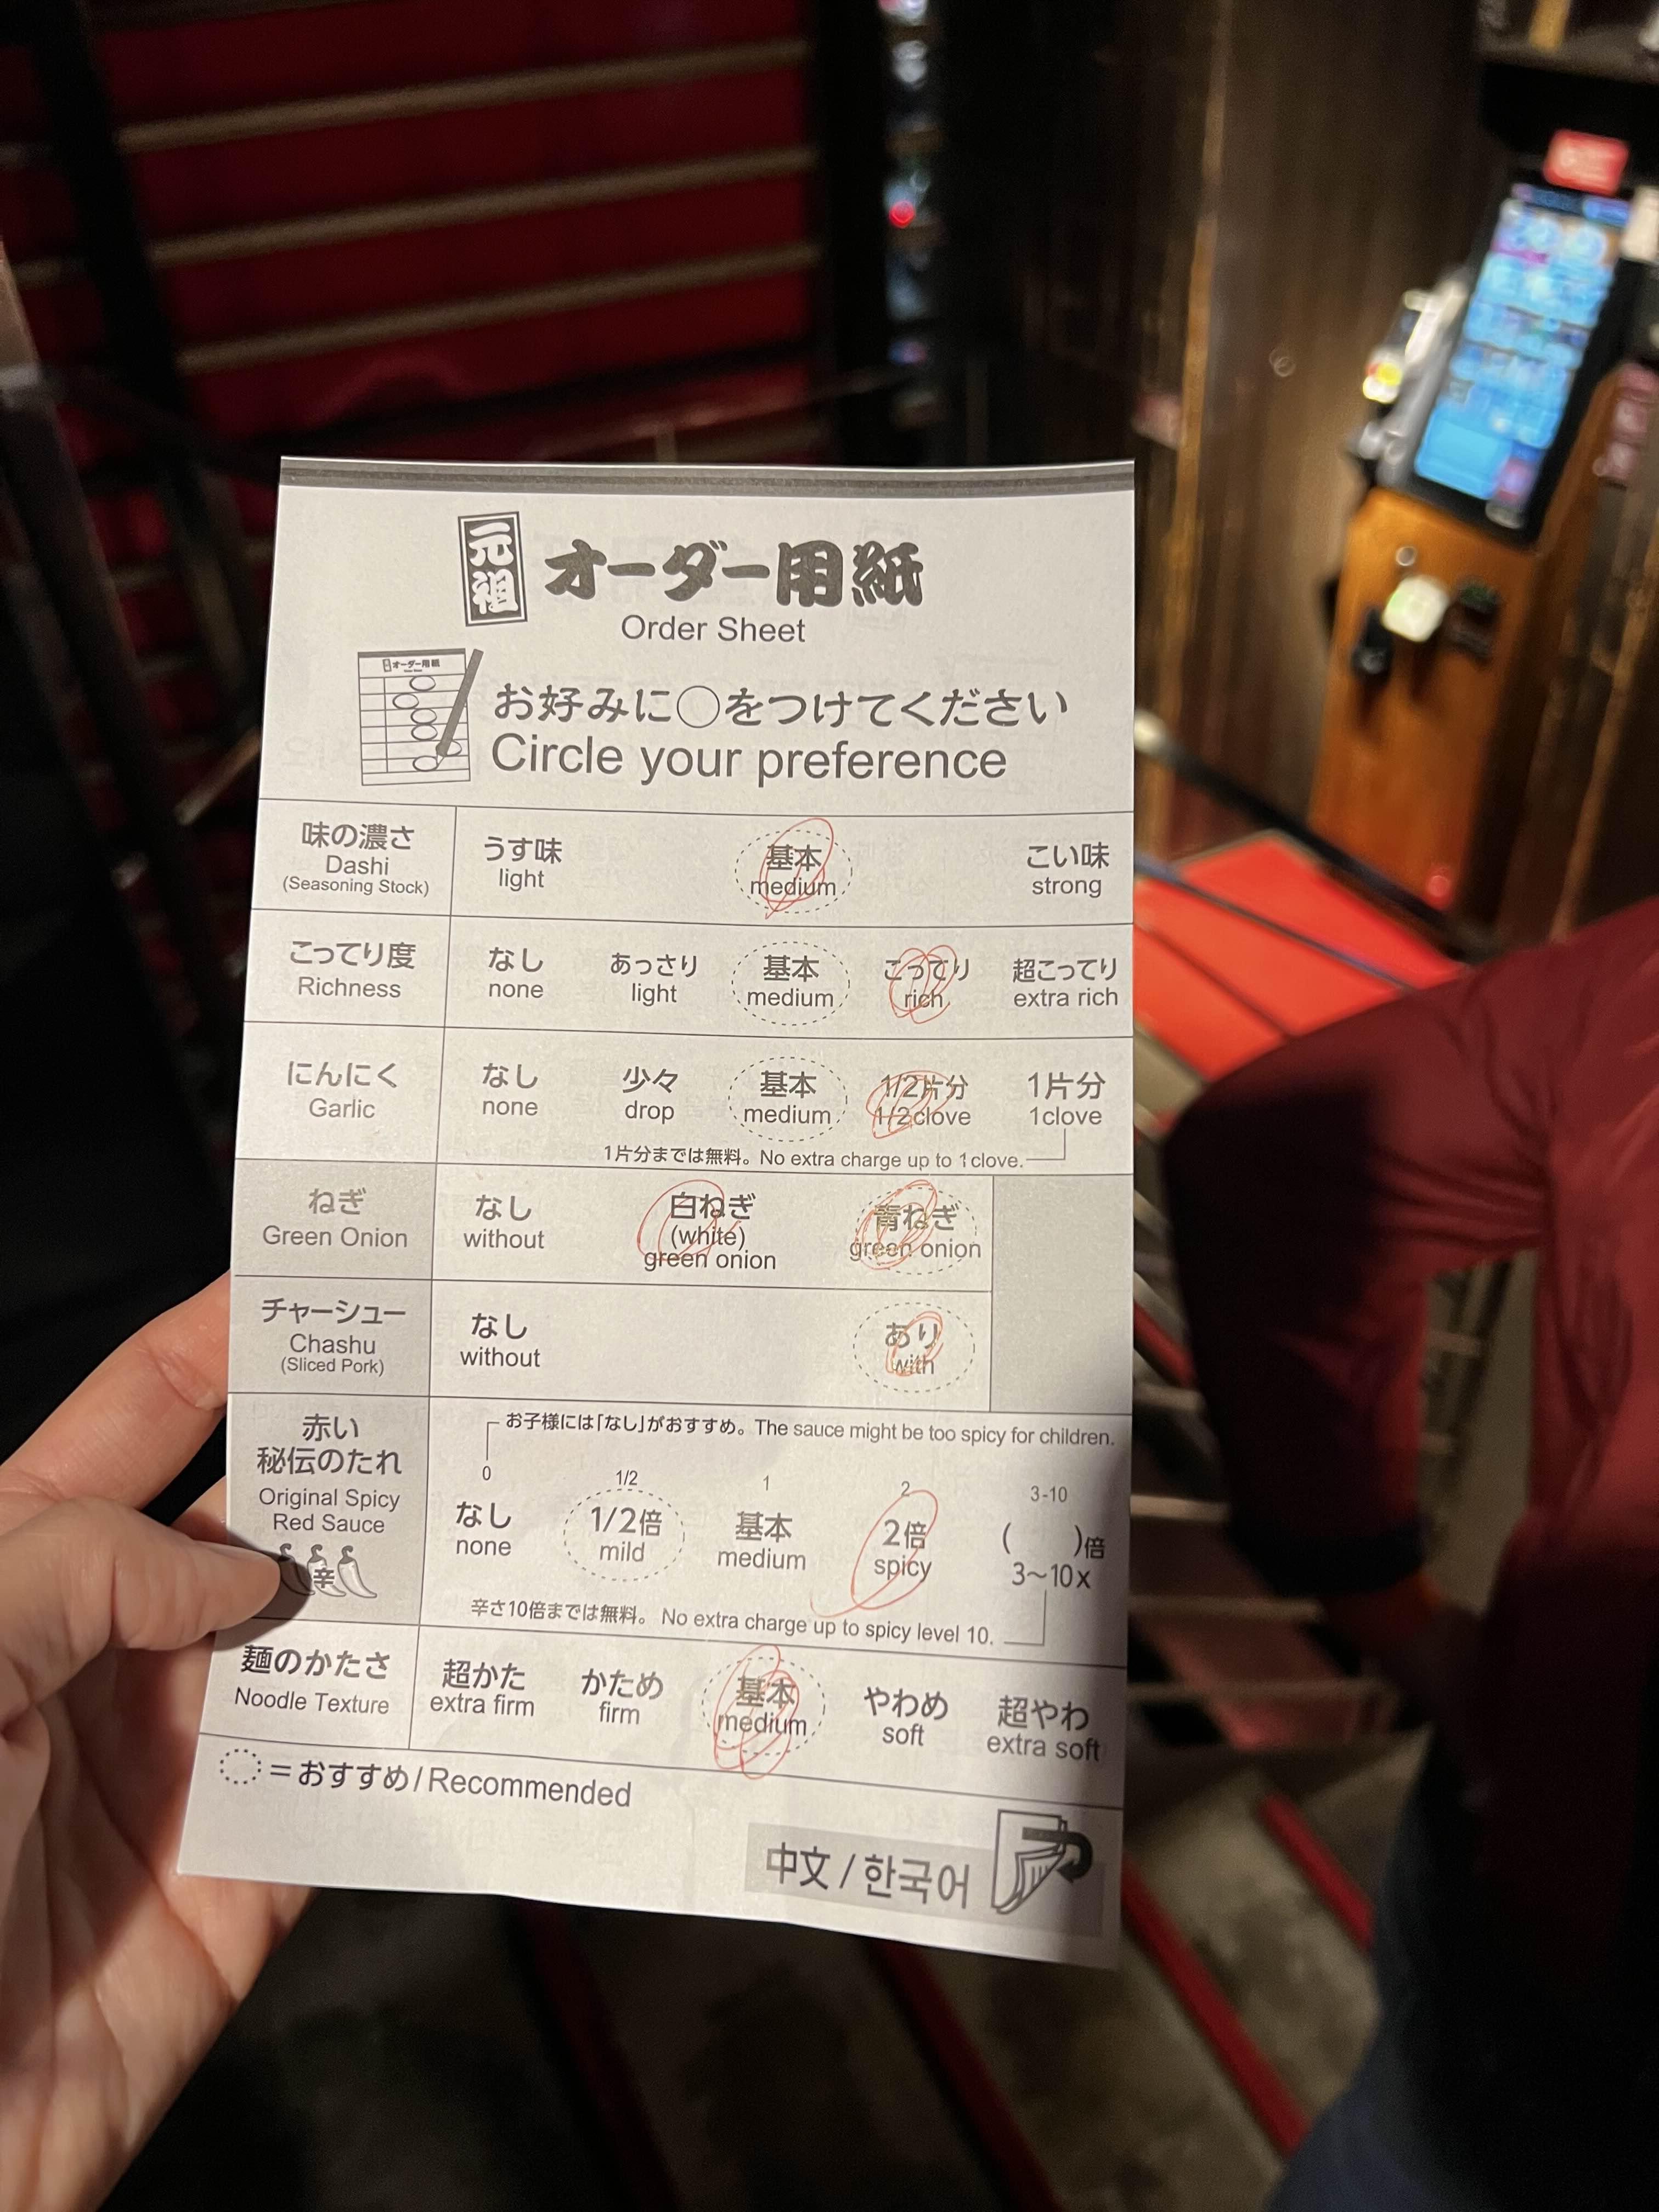 元祖 オーダー用紙
Order Sheet
オーダー用紙
お好みに○をつけてください
Circle your preference
味の濃さ
Dashi
(Seasoning Stock)
うす味
light
基本
medium
こい味
strong
こってり度
Richness
なし
none
あっさり
light
基本
medium
こってり
rich
超こってり
extra rich
にんにく
Garlic
なし
none
少々
drop
基本
medium
1/2片分
1/2clove
1片分
1clove
1片分までは無料。No extra charge up to 1clove.
ねぎ
Green Onion
なし
without
白ねぎ
(white)
green onion
青ねぎ
green onion
チャーシュー
Chashu
(Sliced Pork)
なし
without
あり
with
赤い
秘伝のたれ
Original Spicy
Red Sauce
辛
お子様には「なし」がおすすめ。The sauce might be too spicy for children.
0
なし
none
1/2
1/2倍
mild
1
基本
medium
2
2倍
spicy
3-10
( )倍
3〜10x
辛さ10倍までは無料。 No extra charge up to spicy level 10.
麺のかたさ
Noodle Texture
超かた
extra firm
かため
firm
基本
medium
やわめ
soft
超やわ
extra soft
=おすすめ/Recommended
中文/한국어